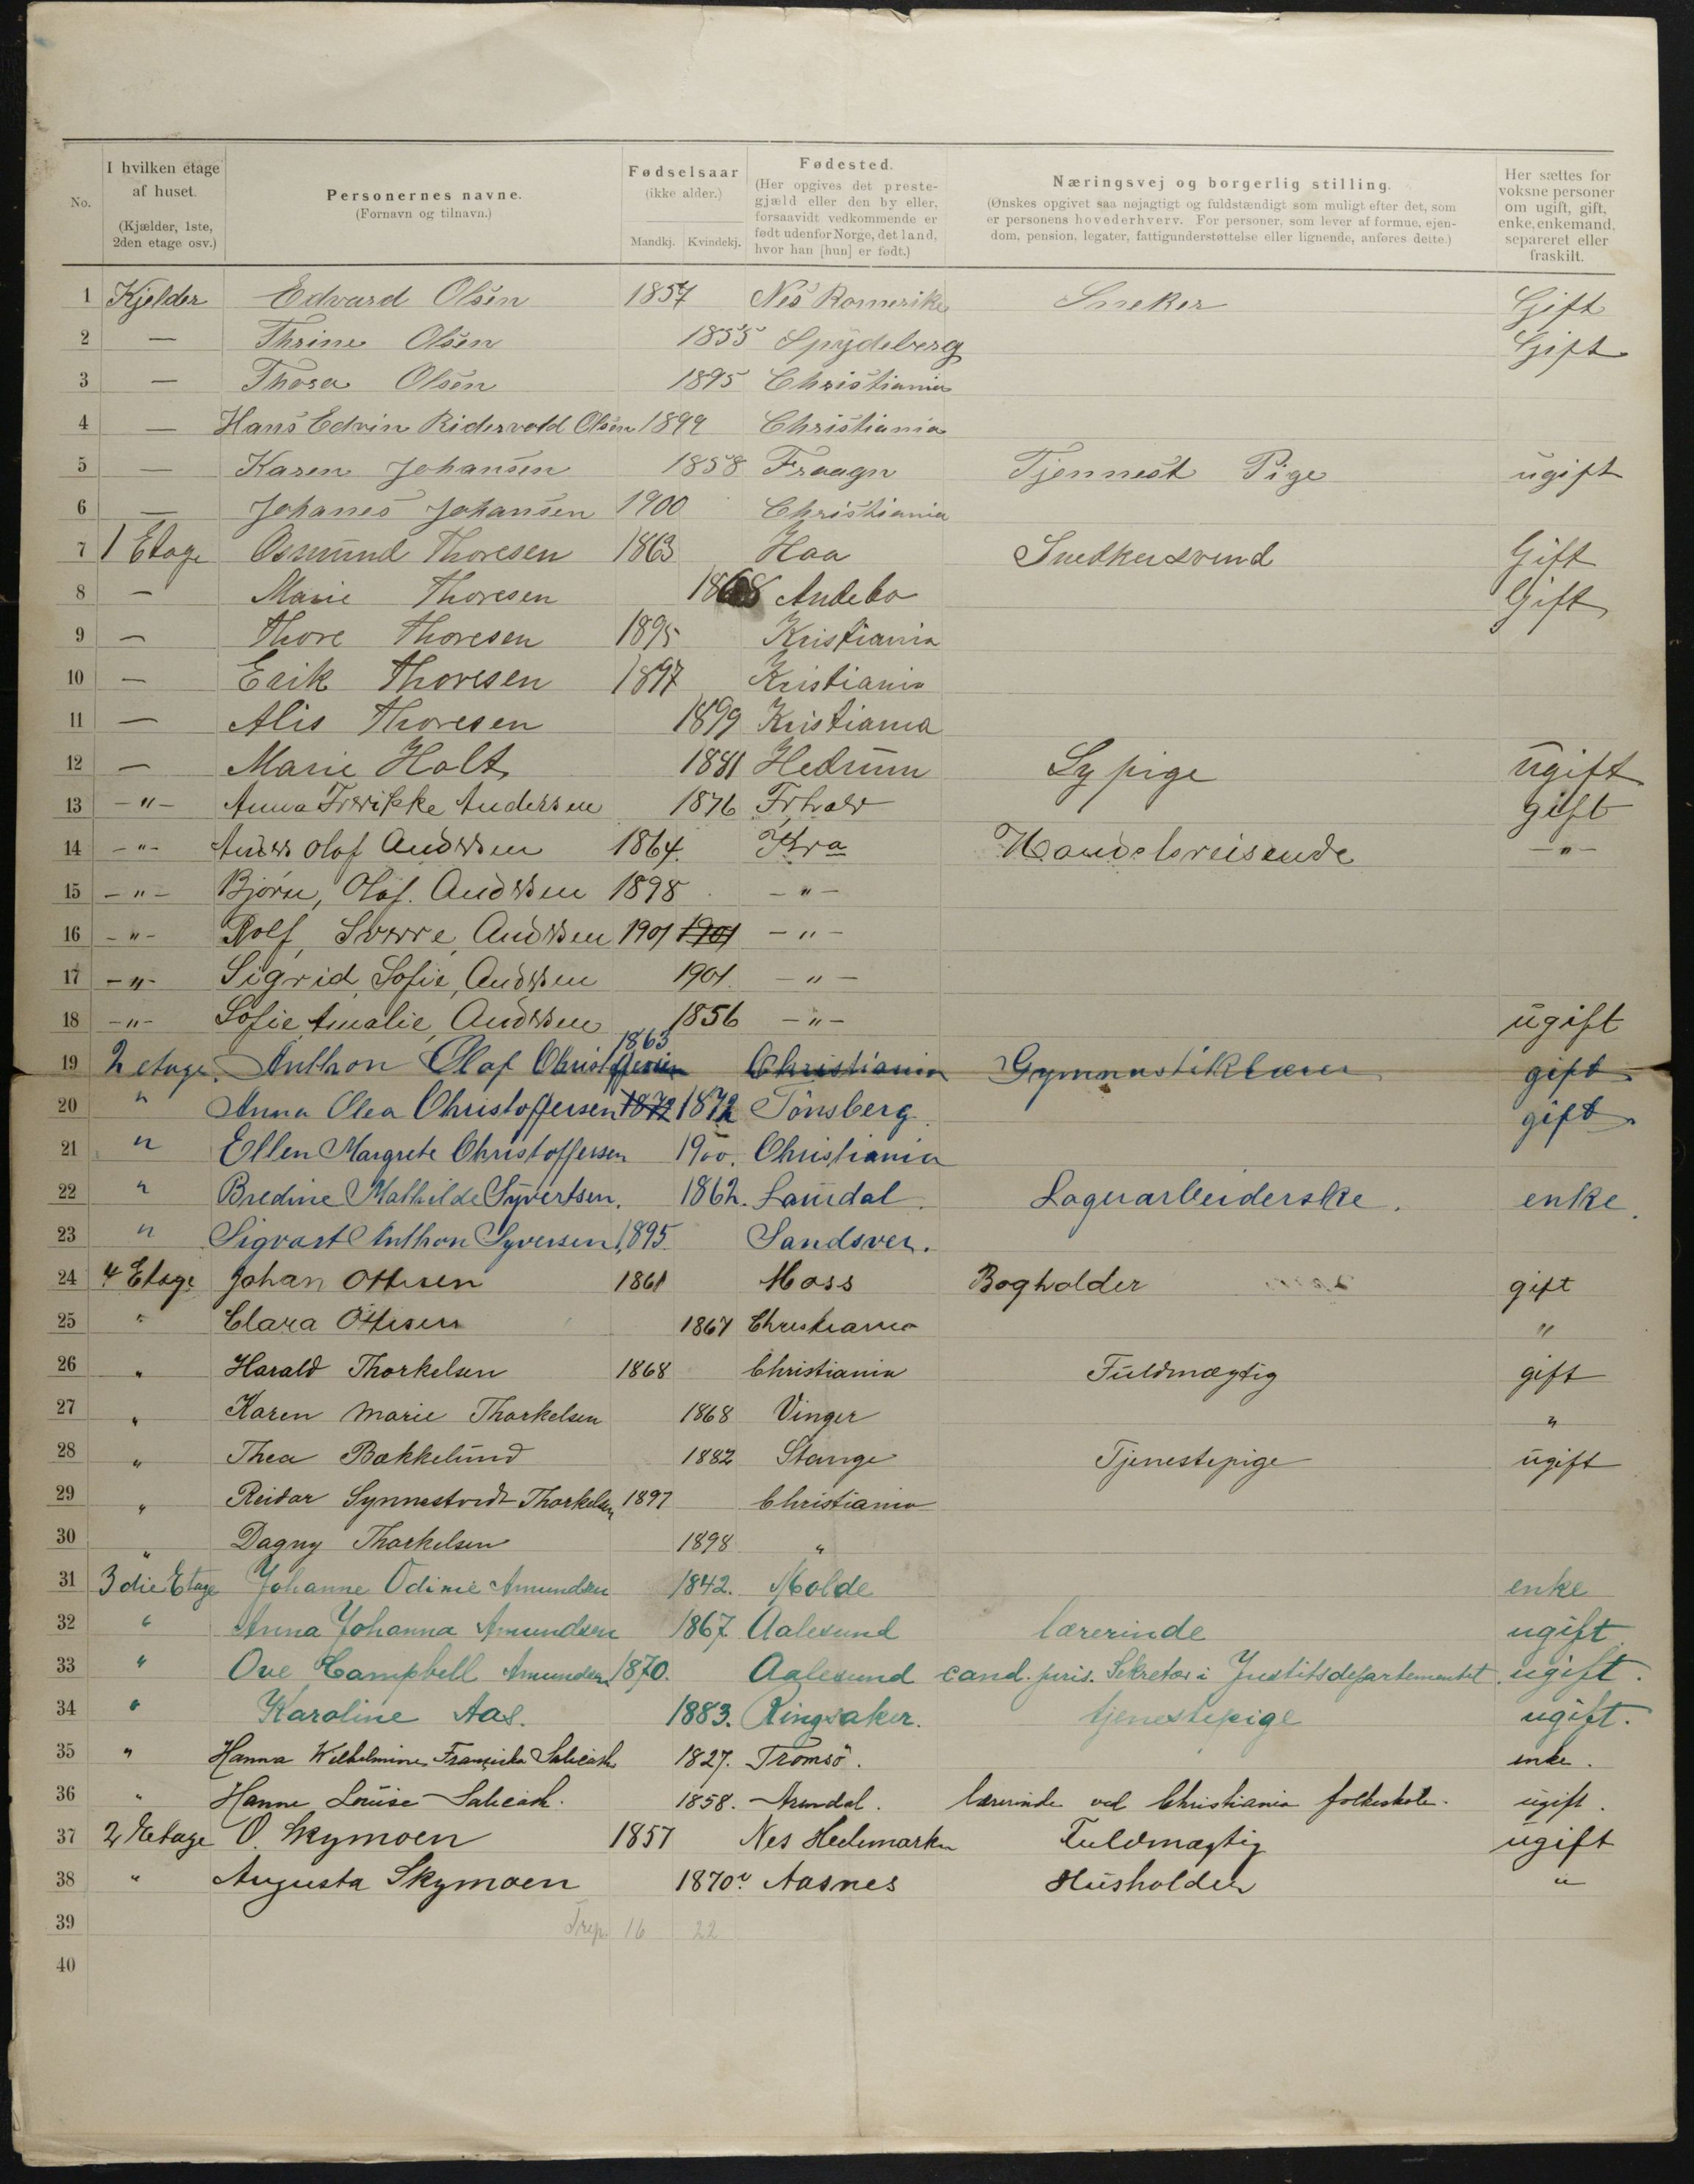 No. I hvilken etage af huset. (Kjælder, 1ste, 2den etage osv.) Personernes navne. (Fornavn og tilnavn.) Fødselsaar (ikke alder.) Mandkj. Kvindekj. Fødested. (Her opgives det prestegjæld eller den by eller, forsaavidt vedkommende er født udenfor Norge, det land, hvor han [hun] er født.) Næringsvej og borgerlig stilling. (Ønskes opgivet saa nøjagtigt og fuldstændigt som muligt efter det, som er personens hovederhverv. For personer, som lever af formue, ejendom, pension, legater, fattigunderstøttelse eller lignende, anføres dette.) Her sættes for voksne personer om ugift, gift, enke, enkemand, separeret eller fraskilt.
1 Kjelder Edvard Olsen 1857 Nes Romerike Sneker Gift
2 — Thrine Olsen 1855 Spydeberg Gift
3 — Thora Olsen 1895 Christiania
4 — Hans Edvin Ridervold Olsen 1899 Christiania
5 — Karen Johansen 1858 Fraagn Tjennest Pige ugift
6 — Johanes Johansen 1900 Christiania
7 1 Etage Osmund Thoresen 1863 Haa Snedkersvend Gift
8 — Marie Thoresen 1868 Andebo Gift
9 — Thore Thoresen 1895 Kristiania
10 — Erik Thoresen 1897 Kristiania
11 — Alis Thoresen 1899 Kristiania
12 — Marie Holt 1881 Hedrum Sypige ugift
13 -"- Anna Fredrikke Andersen 1876 gift
14 -"- Anders Olaf Andersen 1864. Kra Handelsreisende -"-
15 -"- Bjørn, Olaf. Andersen 1898 -"-
16 -"- Rolf, Sverre, Andersen 1901 1901 -"-
17 -"- Sigrid, Sofie, Andersen 1901. -"-
18 -"- Sofie Amalie, Andersen 1856 -"- ugift
19 2 etage. Anthon Olaf Christoffersen 1863 Christiania Gymnastiklærer gift
20 " Anna Olea Christoffersen 1872 1872 Tönsberg. gift
21 " Ellen Margrete Christoffersen 1900. Christiania
22 " Bredine Mathilde Syvertsen. 1862. Laurdal. Lagerarbeiderske. enke.
23 " Sigvart Anthon Syversen 1895. Sandsver.
24 4 Etage Johan Ottesen 1861 Moss Bogholder gift
25 " Clara Ottesen 1867 Christiania "
26 " Harald Thorkelsen 1868 Christiania Fuldmægtig gift
27 " Karen Marie Thorkelsen 1868 Vinger "
28 " Thea Bakkelund 1882 Stange Tjenestepige ugift
29 " Reidar Synnestvedt Thorkelsen 1897 Christiania
30 " Dagny Thorkelsen 1898 "
31 3die Etage Johanne Odine Amundsen 1842. Molde enke
32 " Anna Johanna Amundsen 1867 Aalesund lærerinde ugift
33 " Ove Campbell Amundsen 1870. Aalesund cand. juris. Sekretær i Justitsdepartementet. ugift.
34 " Karoline Aas. 1883. Ringsaker. tjenestepige ugift.
35 " Hanna Wilhelmine Franziska 1827. Tromsö. enke.
36 " Hanne Louise 1858. Arendal. lærerinde ved Christiania folkeskole. ugift.
37 2 Etage O. Skymoen 1857 Nes Hedemarken Fuldmægtig ugift
38 " Augusta Skymoen 1870. Aasnes Husholder "
39 16 22
40